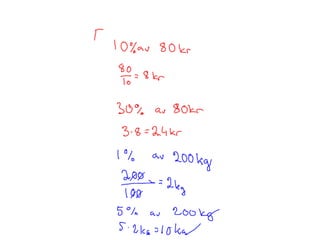 10% av 80 kr
80/10 = 8 kr
30% av 80kr
3·8=24kr
1% av 200kg
200/100 = 2kg
5% av 200kg
5·2kg=10kg